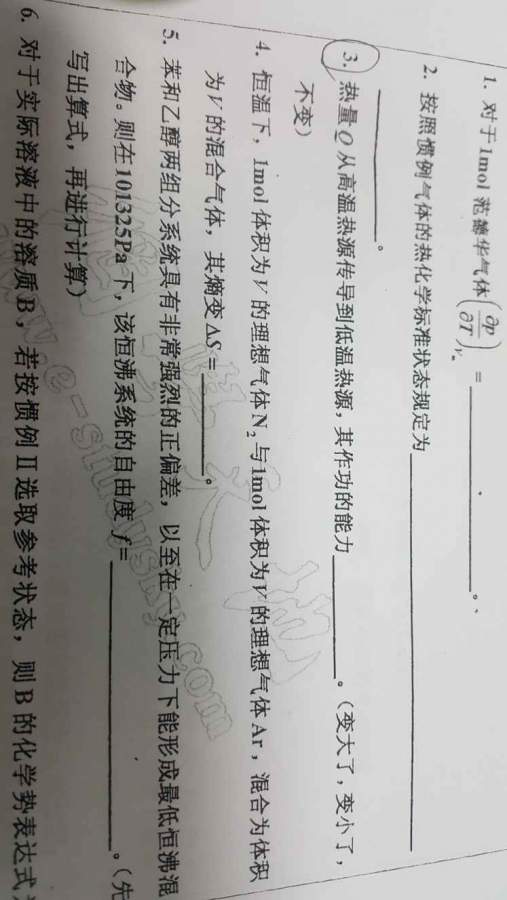 1. 对于1mol 范德华气体(∂p/∂T)Vₘ = ________。
2. 按照惯例气体的热化学标准状态规定为________
________。
3. 热量Q从高温热源传导到低温热源，其作功的能力________。（变大了，变小了，
不变）
4. 恒温下，1mol 体积为V的理想气体N₂与1mol 体积为V的理想气体Ar，混合为体积
为V的混合气体，其熵变ΔS=________。
5. 苯和乙醇两组分系统具有非常强烈的正偏差，以至在一定压力下能形成最低恒沸混
合物。则在101325Pa下，该恒沸系统的自由度 f=________。（先
写出算式，再进行计算）
6. 对于实际溶液中的溶质B，若按惯例II选取参考状态，则B的化学势表达式